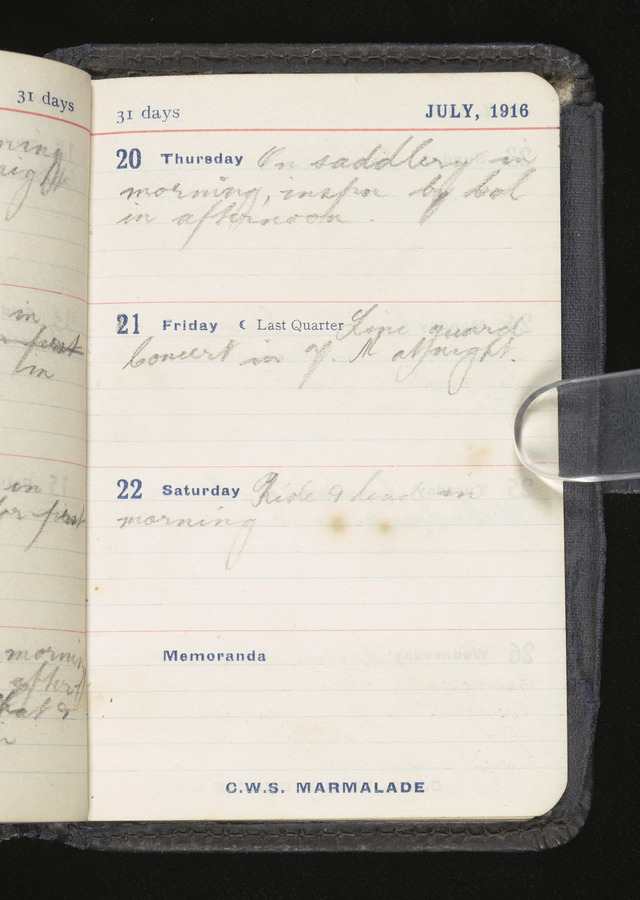 31 days
ning
night
in
first
in
in
for first
morning
after
that &
31 days JULY, 1916
20 Thursday On saddlery in
morning, inspn by Col
in afternoon.
21 Friday ☾ Last Quarter Line guard
Concert in Y. M at night.
22 Saturday Ride & lead in
morning
Memoranda
C.W.S. MARMALADE